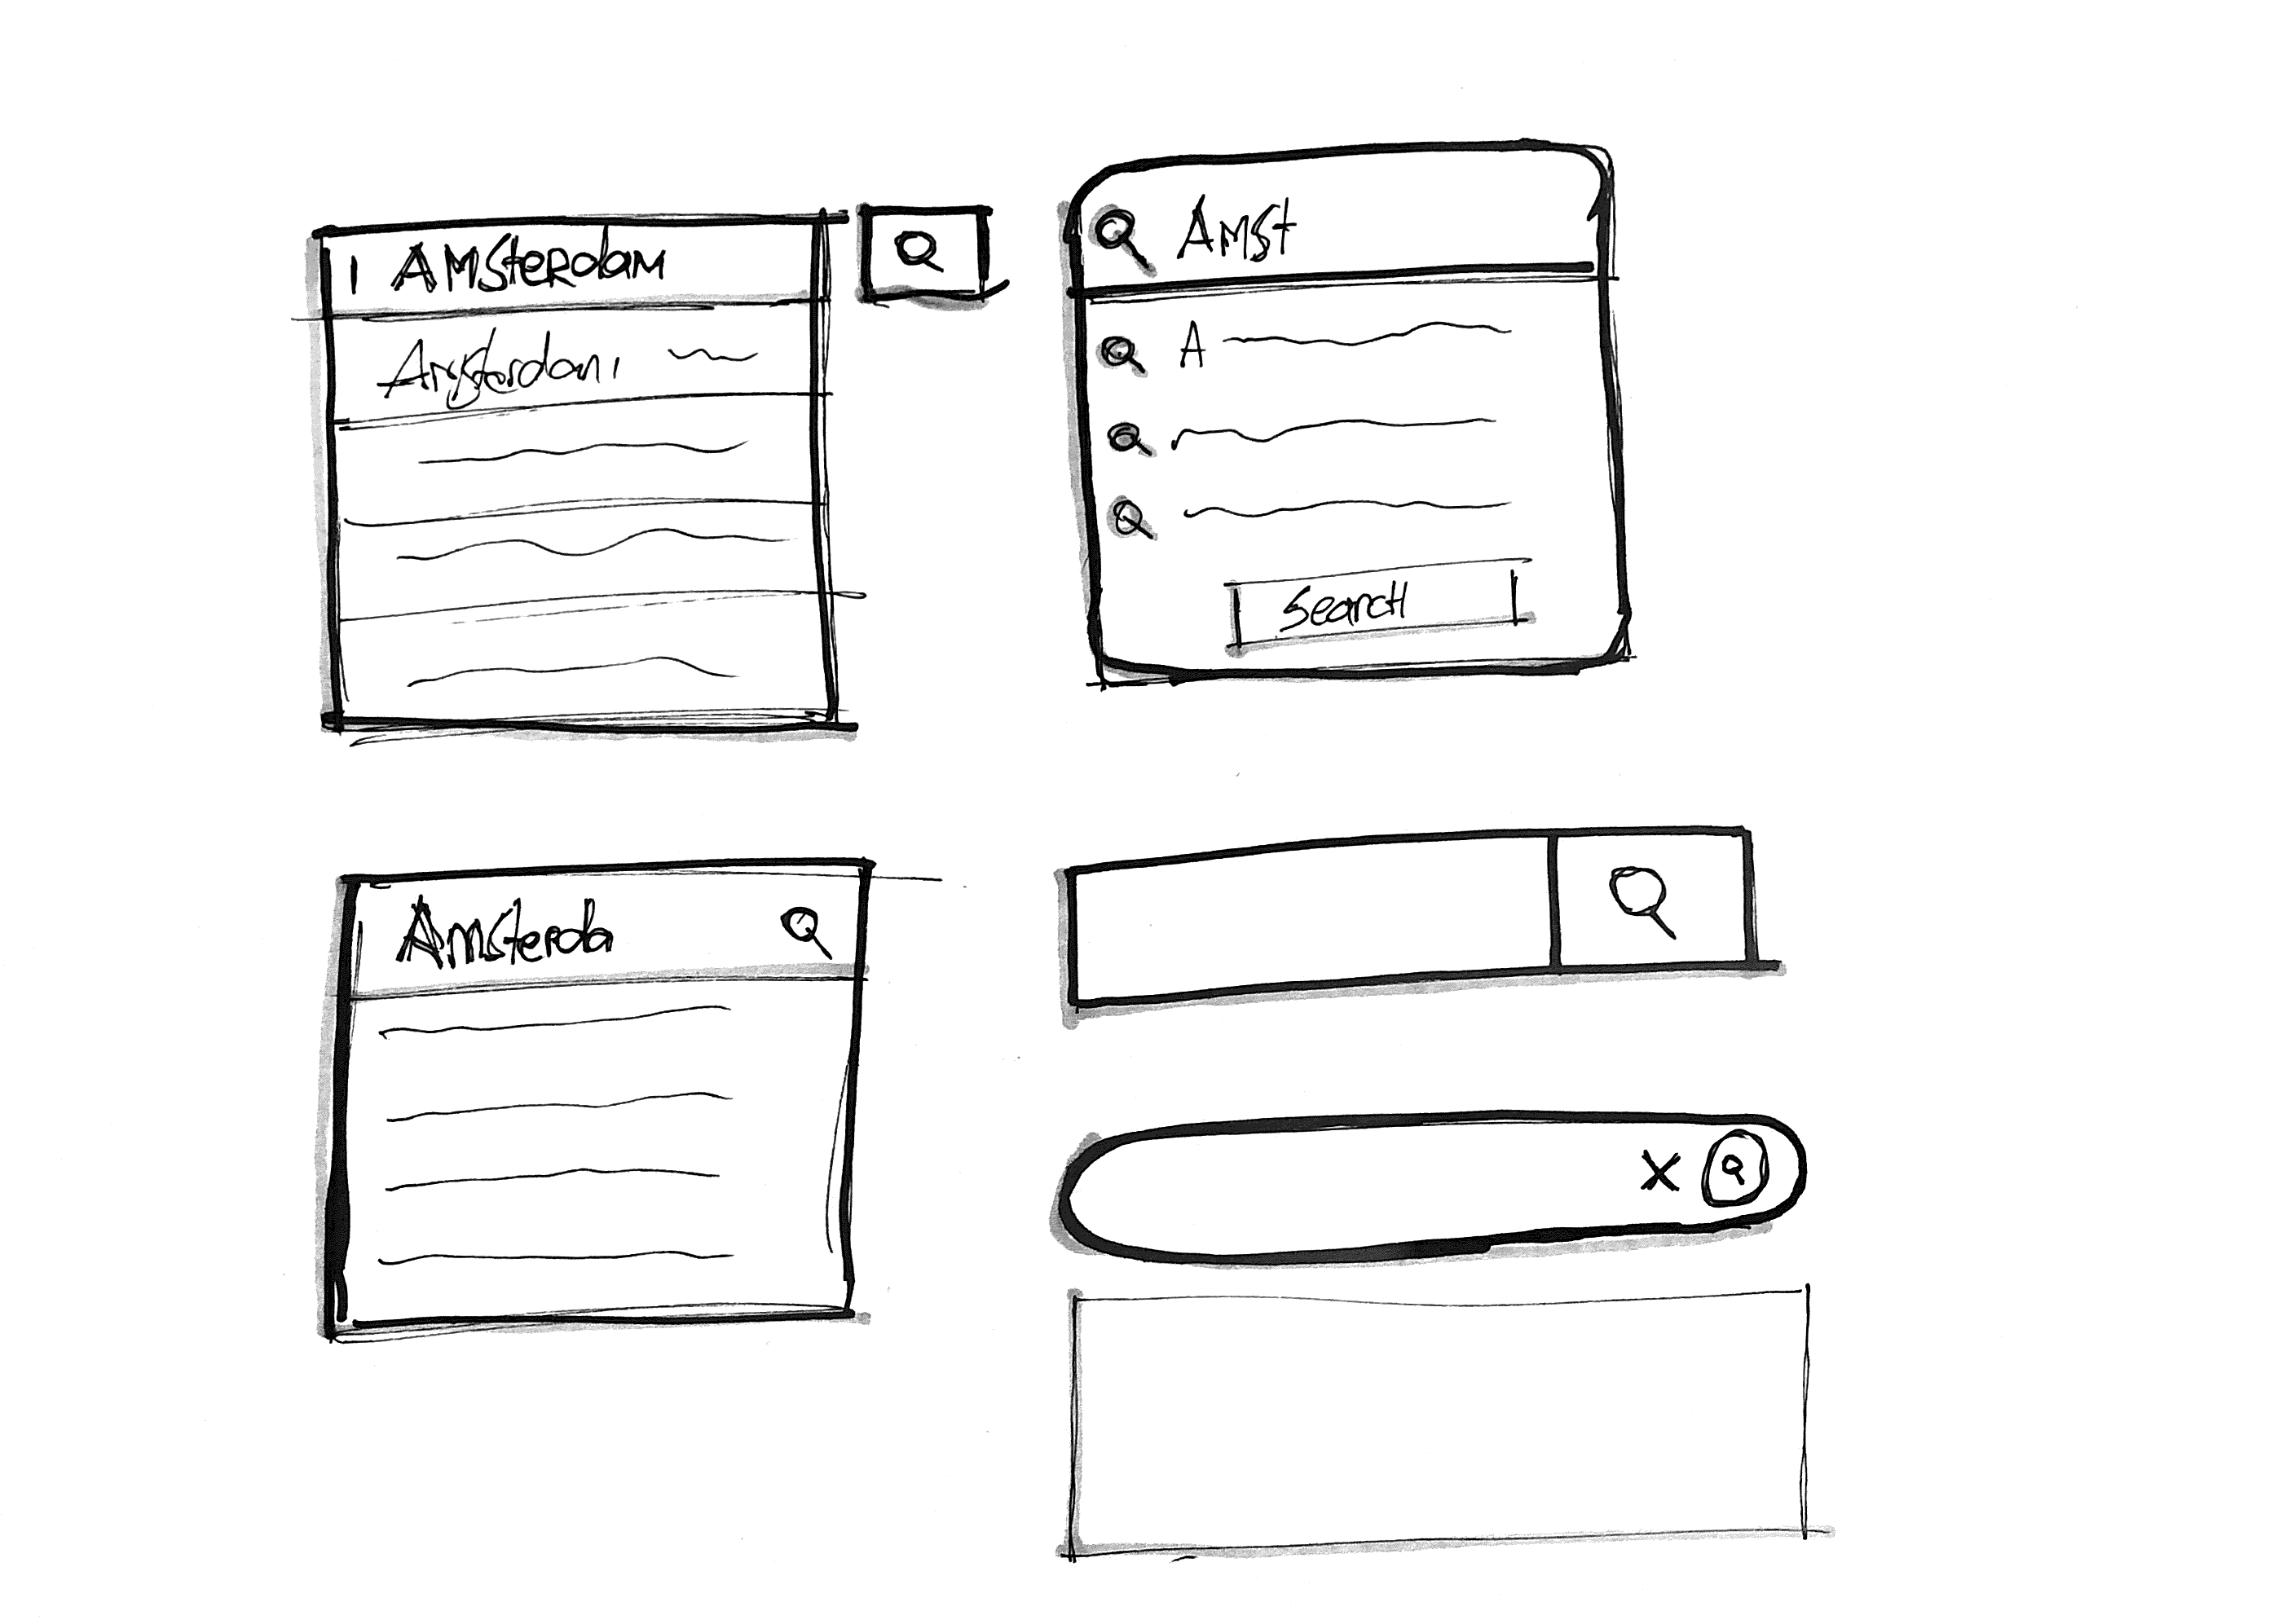 AMsterdam
Amsterdam
Amst
A
Search
Amsterda
X